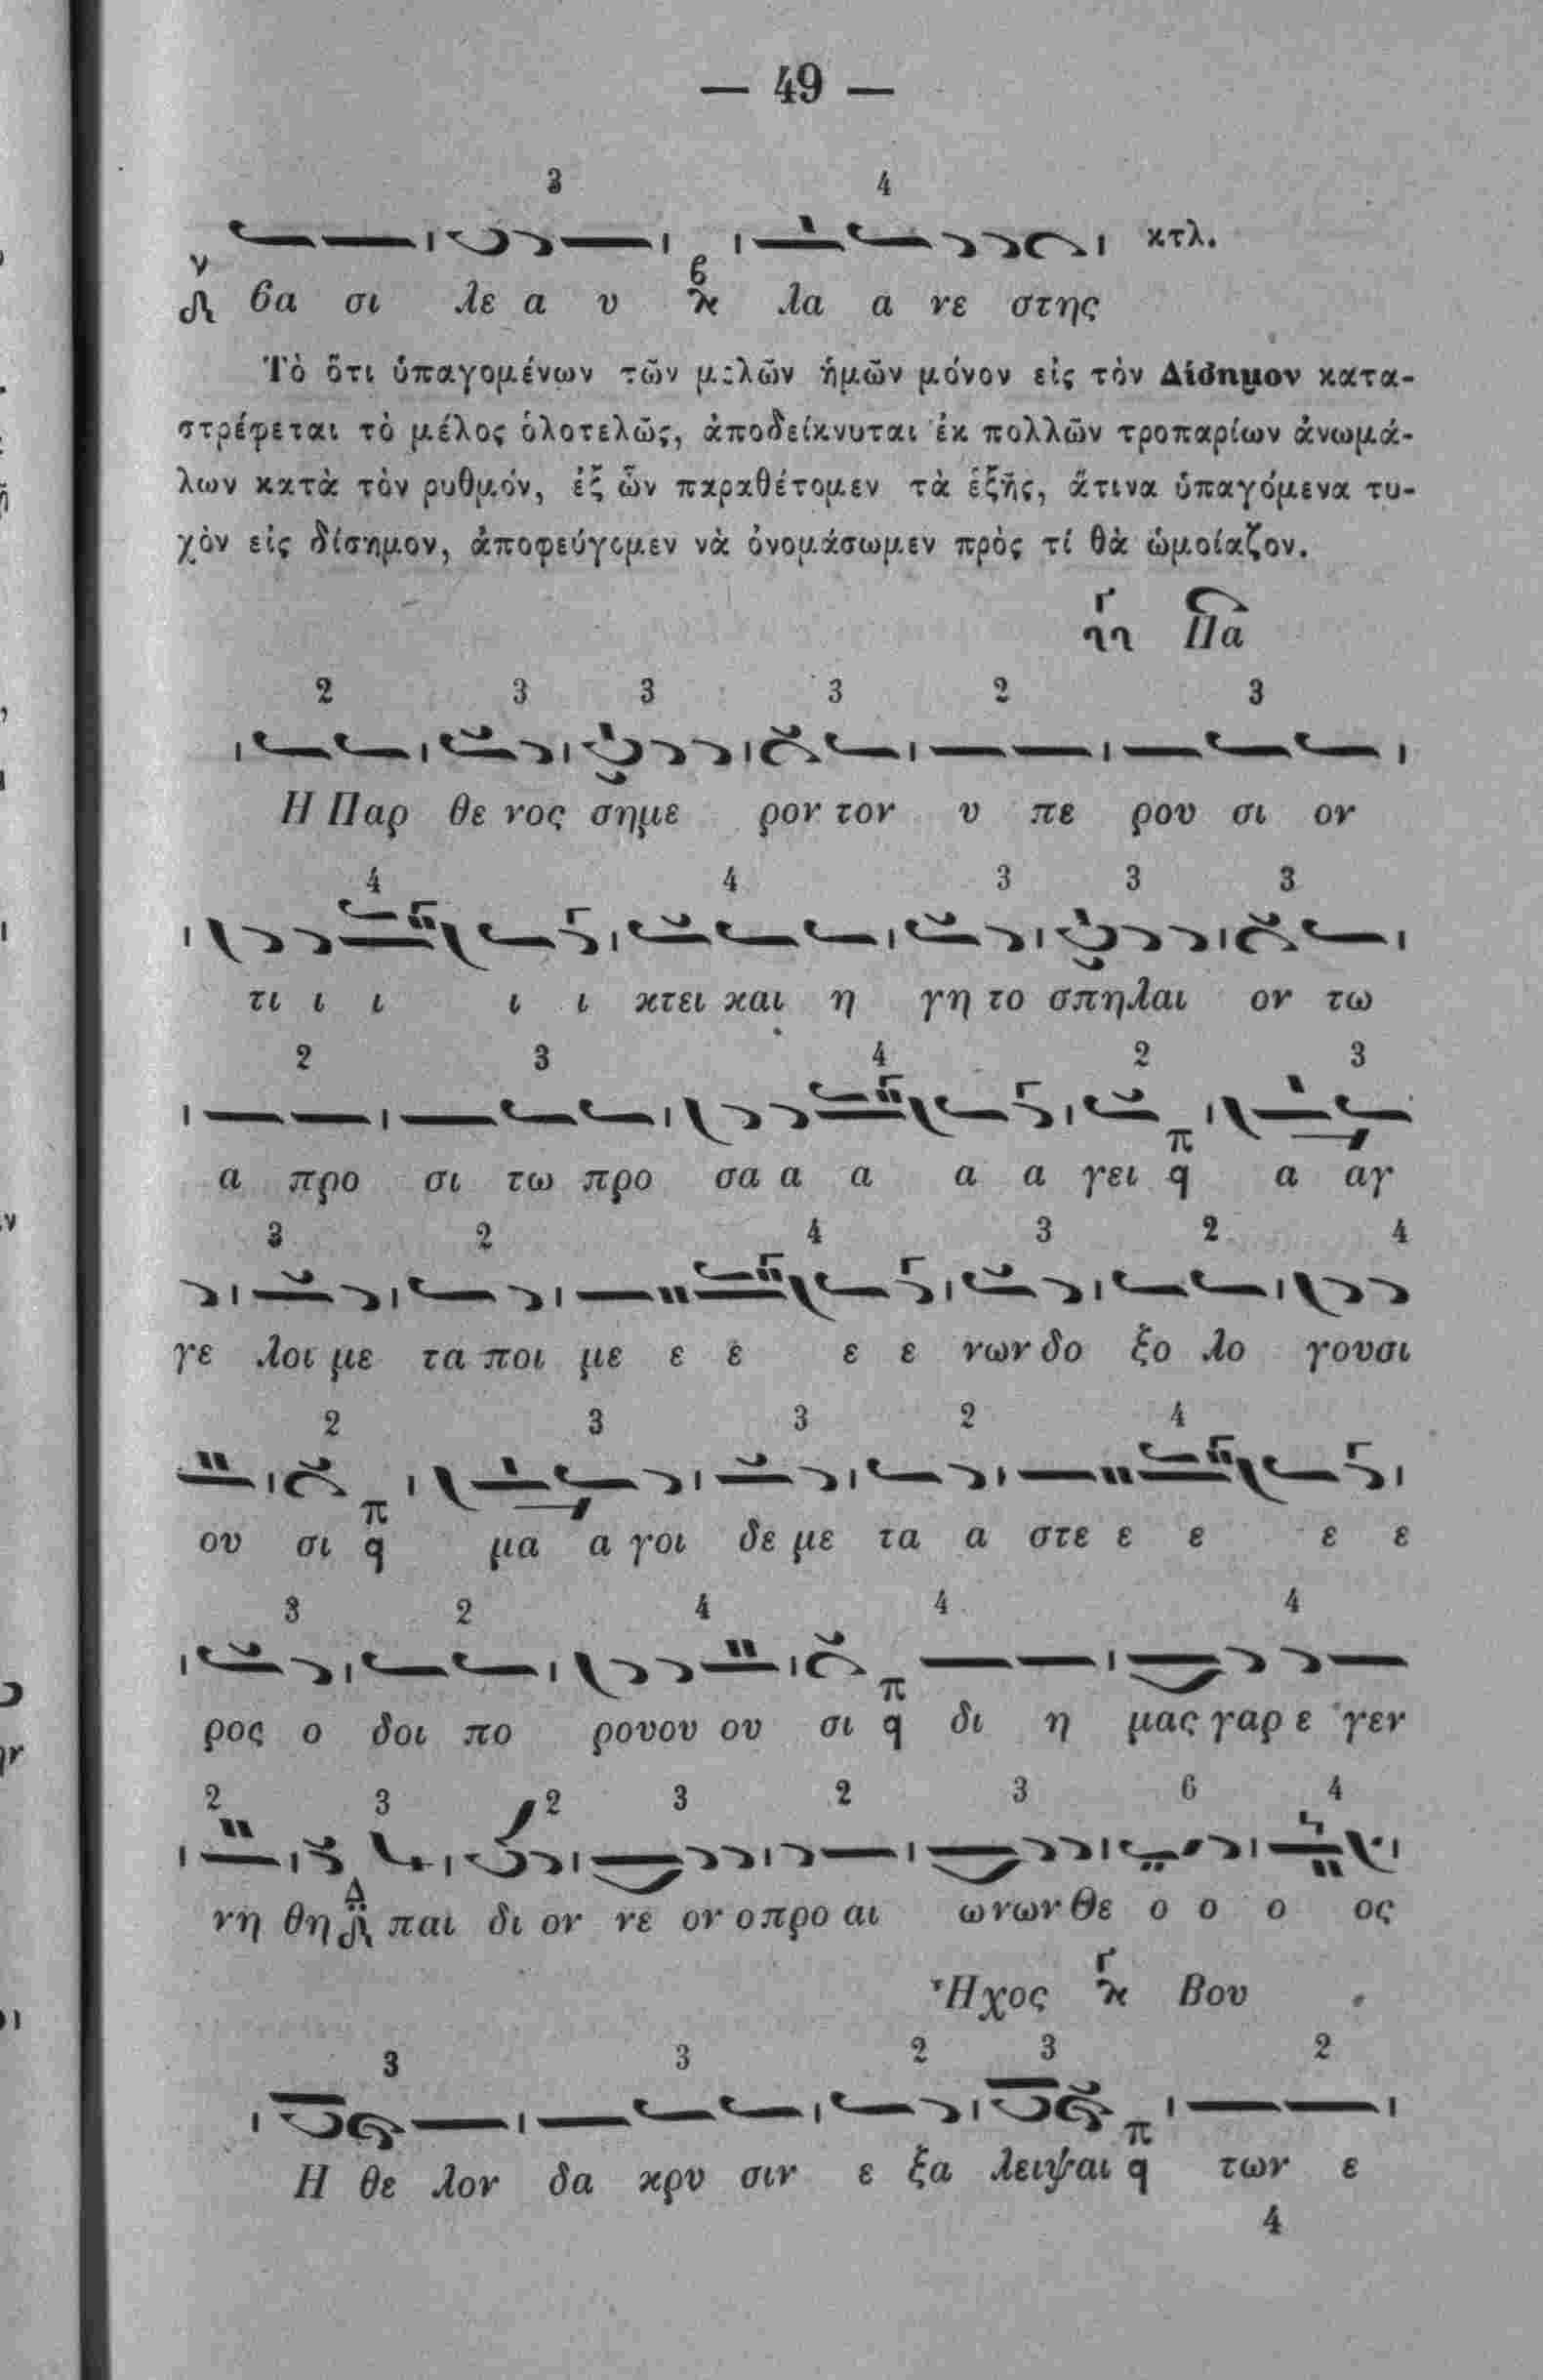 — 49 —
3 4
κτλ.
βα σι λε α υ λα α νε στης
Τὸ ὅτι ὑπαγομένων τῶν μελῶν ἡμῶν μόνον εἰς τὸν Δίσημον κατα-
στρέφεται τὸ μέλος ὁλοτελῶς, ἀποδείκνυται ἐκ πολλῶν τροπαρίων ἀνωμά-
λων κατὰ τὸν ρυθμόν, ἐξ ὧν παραθέτομεν τὰ ἑξῆς, ἅτινα ὑπαγόμενα τυ-
χὸν εἰς δίσημον, ἀποφεύγομεν νὰ ὀνομάσωμεν πρὸς τί θὰ ὡμοίαζον.
Πα
2 3 3 3 2 3
Η Παρ θε νος σημε ρον τον υ πε ρου σι ον
4 4 3 3 3
τι ι ι ι ι κτει και η γη το σπηλαι ον τω
2 3 4 2 3
π
α προ σι τω προ σα α α α α γει q α αγ
3 2 4 3 2 4
γε λοι με τα ποι με ε ε ε ε νων δο ξο λο γουσι
2 3 3 2 4
π
ου σι q μα α γοι δε με τα α στε ε ε ε ε
3 2 4 4 4
π
ρος ο δοι πο ρουου ου σι q δι η μας γαρ ε γεν
2 3 2 3 2 3 6 4
Δ
νη θη παι δι ον νε ον ο προ αι ωνων Θε ο ο ο ος
Ἦχος Βου
3 3 2 3 2
π
Η θε λον δα κρυ σιν ε ξα λειψαι q των ε
4